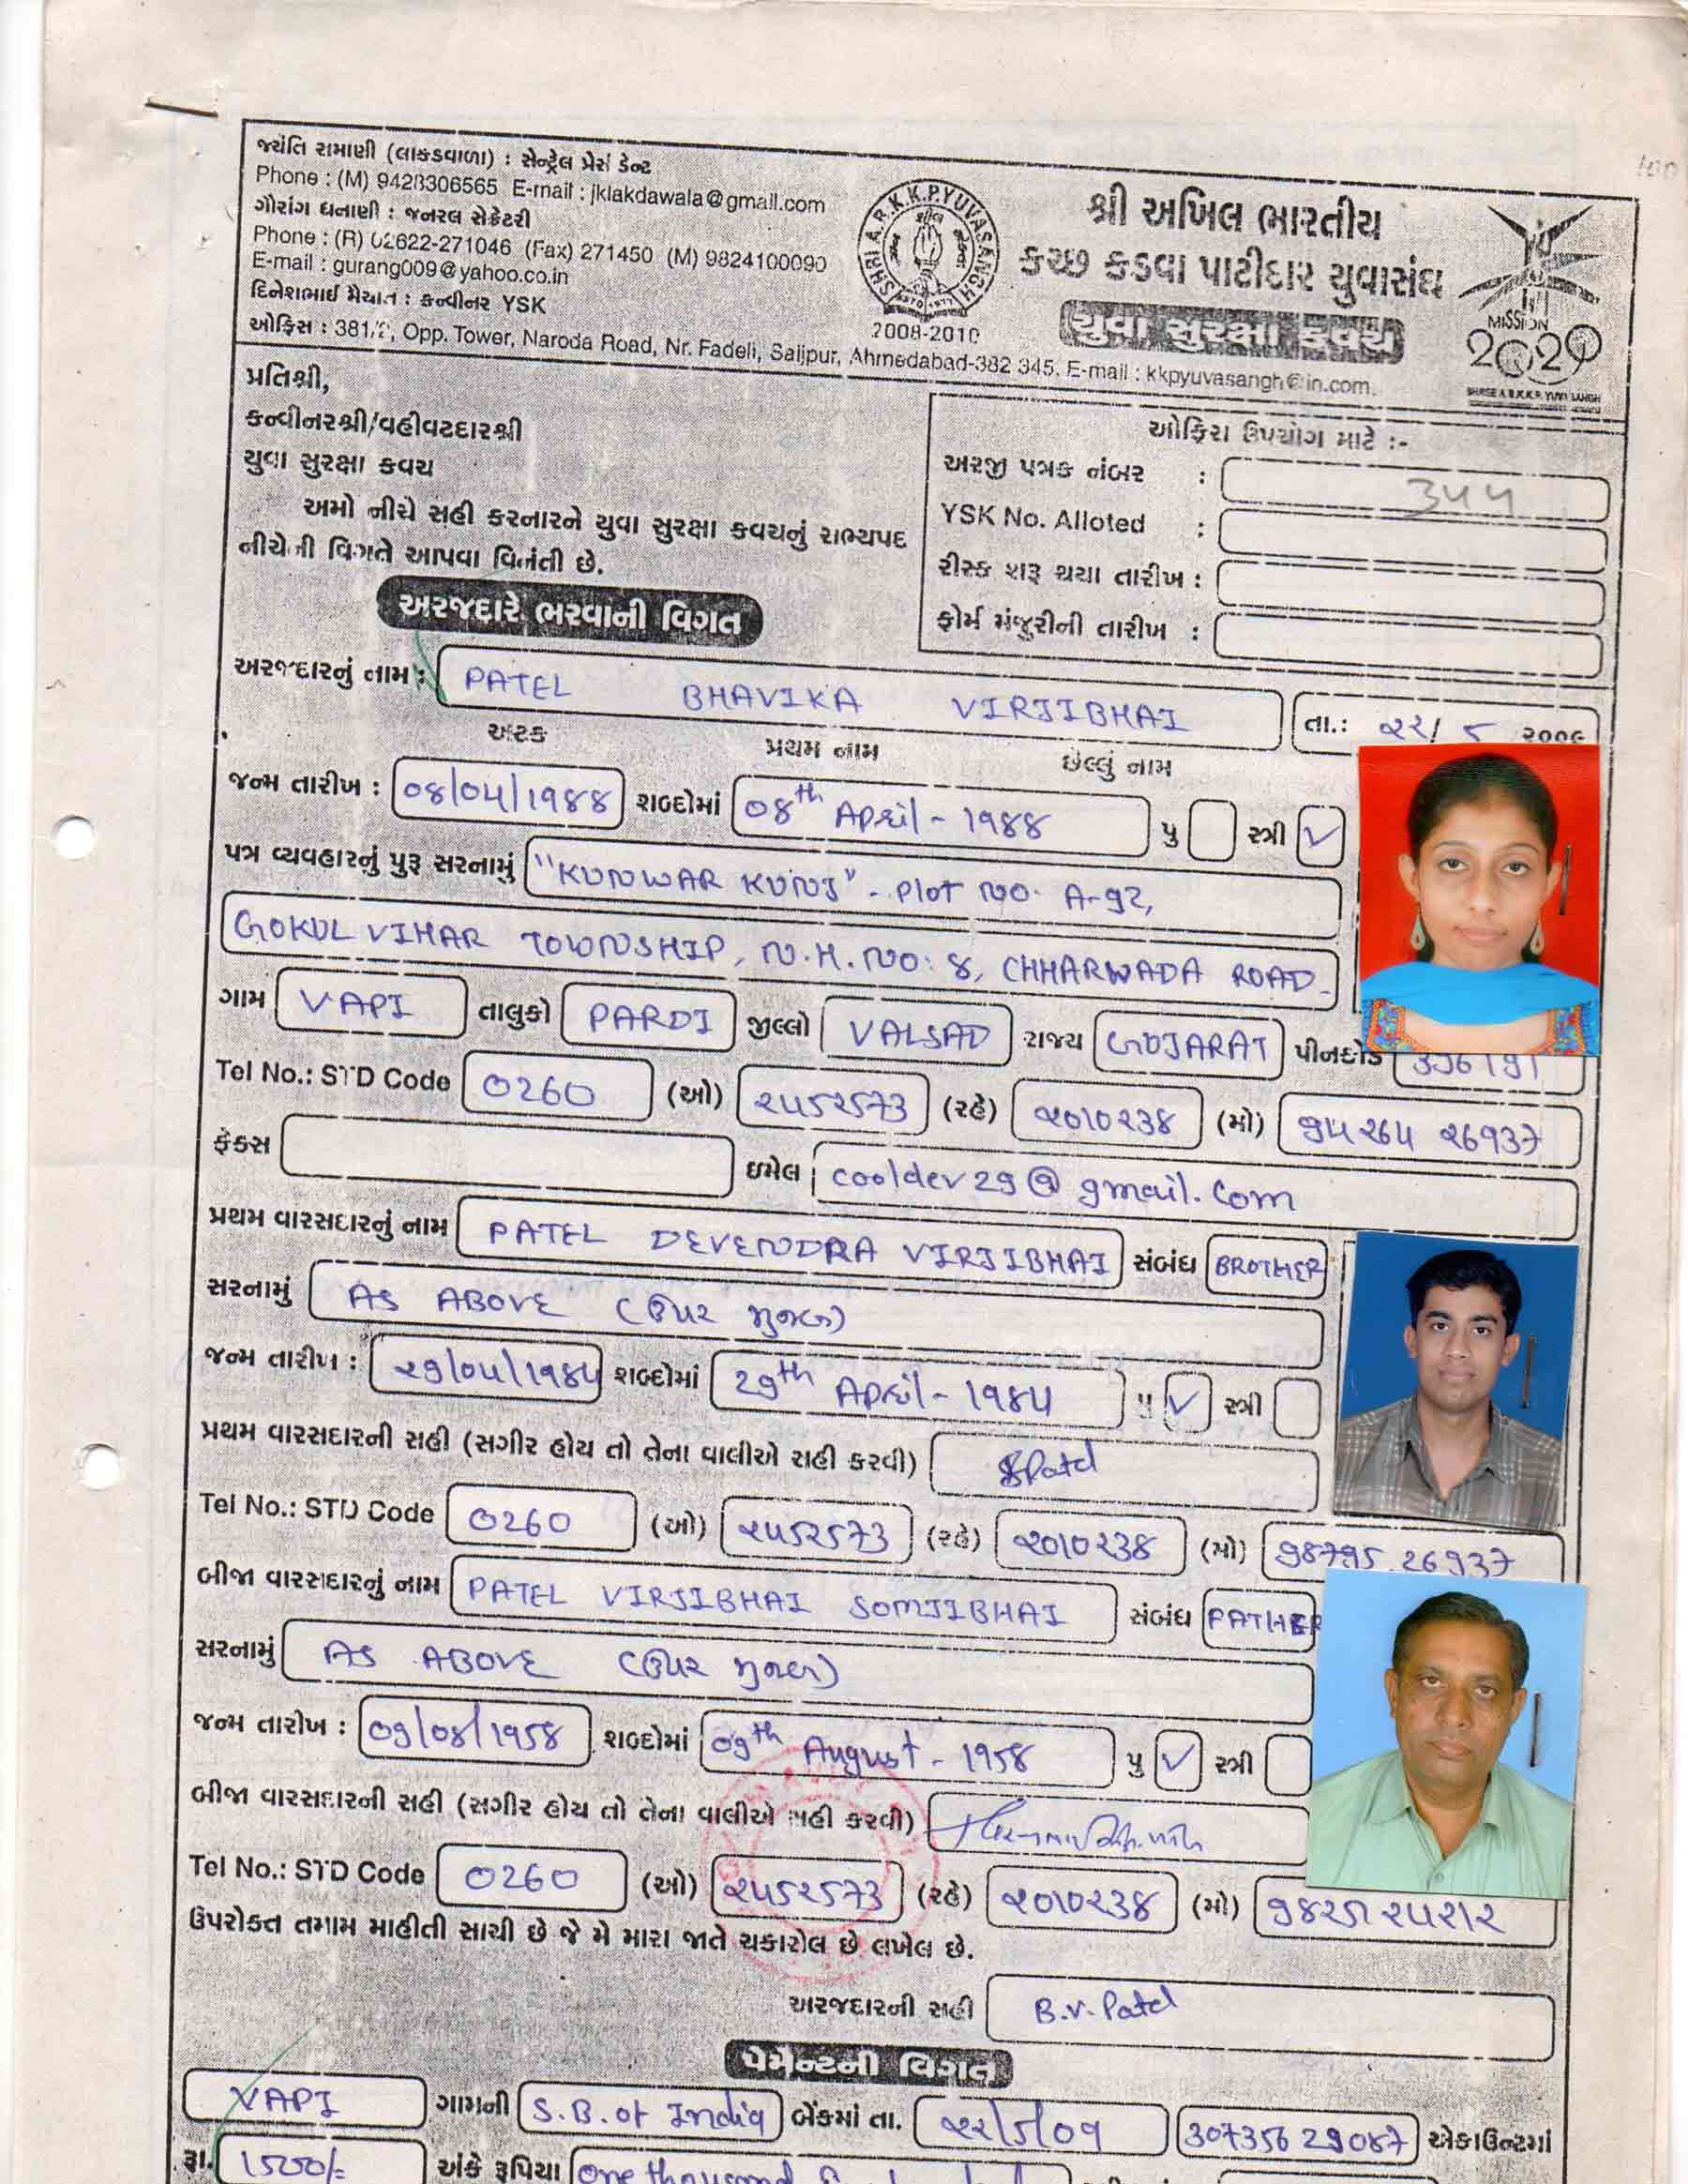 જયંતિ રામાણી (લાકડાવાળા) : સેન્ટ્રેલ પ્રેસીડેન્ટ
Phone : (M) 9428306565 E-mail : jklakdawala@gmail.com
ગૌરાંગ ધનાણી : જનરલ સેક્રેટરી
Phone : (R) 02622-271046 (Fax) 271450 (M) 9824100090
E-mail : gurang009@yahoo.co.in
દિનેશભાઈ મૈયાત : કન્વીનર YSK
ઓફિસ : 381/2, Opp. Tower, Naroda Road, Nr. Fadeli, Saijpur, Ahmedabad-382 345. E-mail : kkpyuvasangh@in.com.
2008-2010
શ્રી અખિલ ભારતીય
કચ્છ કડવા પાટીદાર યુવાસંઘ
યુવા સુરક્ષા કવચ
MISSION
પ્રતિશ્રી,
કન્વીનરશ્રી/વહીવટદારશ્રી
યુવા સુરક્ષા કવચ
અમો નીચે સહી કરનારને યુવા સુરક્ષા કવચનું સભ્યપદ
નીચેની વિગતે આપવા વિનંતી છે.
ઓફિસ ઉપયોગ માટે :-
અરજી પત્રક નંબર : ૩૫૫
YSK No. Alloted :
રીસ્ક શરૂ થયા તારીખ :
ફોર્મ મંજુરીની તારીખ :
અરજદારે ભરવાની વિગત
અરજદારનું નામ : PATEL BHAVIKA VIRJIBHAI તા.: ૨૨/ ૮ ૨૦૦૯
અટક પ્રથમ નામ છેલ્લું નામ
જન્મ તારીખ : 08/04/1988 શબ્દોમાં 08th April - 1988 પુ સ્ત્રી ✓
પત્ર વ્યવહારનું પુરૂ સરનામું "KUNWAR KUNJ" - Plot NO. A-92,
GOKUL VIHAR TOWNSHIP, N.H. NO: 8, CHHARWADA ROAD
ગામ VAPI તાલુકો PARDI જીલ્લો VALSAD રાજ્ય GUJARAT પીનકોડ
Tel No.: STD Code 0260 (ઓ) (રહે) ૨૦૧૦૨૩૪ (મો)
ફેક્સ ઇમેલ cooldev29@gmail.com
પ્રથમ વારસદારનું નામ PATEL DEVENDRA VIRJIBHAI સંબંધ BROTHER
સરનામું AS ABOVE (ઉપર મુજબ)
જન્મ તારીખ : શબ્દોમાં 29th April - પુ ✓ સ્ત્રી
પ્રથમ વારસદારની સહી (સગીર હોય તો તેના વાલીએ સહી કરવી)
Tel No.: STD Code 0260 (ઓ) (રહે) ૨૦૧૦૨૩૪ (મો) 98795 26937
બીજા વારસદારનું નામ PATEL VIRJIBHAI SOMJIBHAI સંબંધ FATHER
સરનામું AS ABOVE (ઉપર મુજબ)
જન્મ તારીખ : 09/08/1958 શબ્દોમાં 09th August - 1958 પુ ✓ સ્ત્રી
બીજા વારસદારની સહી (સગીર હોય તો તેના વાલીએ સહી કરવી)
Tel No.: STD Code 0260 (ઓ) (રહે) ૨૦૧૦૨૩૪ (મો)
ઉપરોક્ત તમામ માહીતી સાચી છે જે મે મારા જાતે ચકાસેલ છે લખેલ છે.
અરજદારની સહી B.V. Patel
પેમેન્ટની વિગત
VAPI ગામની S.B. of India બેંકમાં તા. 30735629087 એકાઉન્ટમાં
રૂા. 1500/= અંકે રૂપિયા one thousand